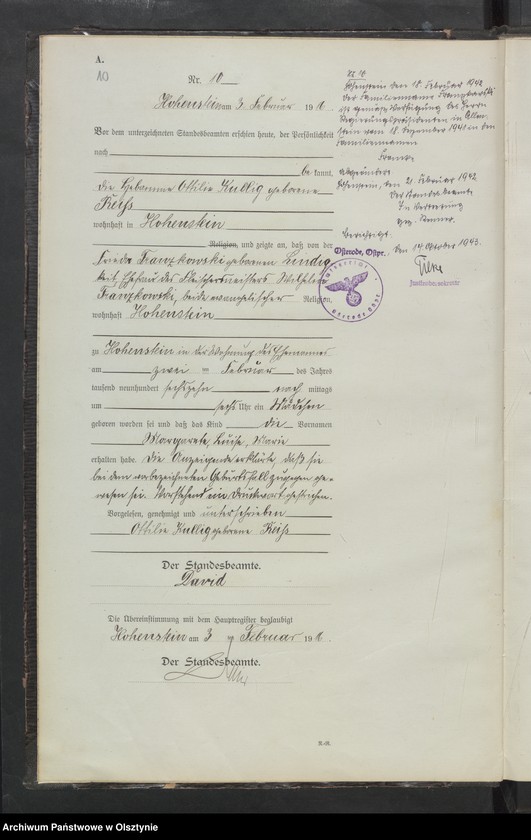 A.
10
Nr. 10
Hohenstein am 3. Februar 191
Vor dem unterzeichneten Standesbeamten erschien heute, der Persönlichkeit
nach
bekannt,
die Hebamme Ottilie Kullig geborene
Reiß
wohnhaft in Hohenstein
Religion, und zeigte an, daß von der
Frieda Franzkowski geborenen Lindig-
keit Ehefrau des Fleischermeisters Wilhelm
Franzkowski, beide evangelischer Religion,
wohnhaft Hohenstein
zu Hohenstein in der Wohnung des Ehemannes
am zwei Februar des Jahres
tausend neunhundert sechszehn nach mittags
um sechs Uhr ein Mädchen
geboren worden sei und daß das Kind die Vornamen
Margarete, Luise, Marie
erhalten habe. Die Anzeigende erklärte, daß sie
bei dem vorbezeichneten Geburtsfall zugegen ge-
wesen sei. Vorstehend ein Druckwort gestrichen.
Vorgelesen, genehmigt und unterschrieben
Ottilie Kullig geborene Reiß
Der Standesbeamte.
David
Die Übereinstimmung mit dem Hauptregister beglaubigt
Hohenstein am 3 Februar 191
Der Standesbeamte.
N. 10.
Hohenstein den 18. Februar 1942
Der Familienname Franzkowski
ist gemäss Verfügung des Herrn
Regierungspräsidenten in Allen-
stein vom 18. Dezember 1941 in den
Familiennamen
abgeändert.
Hohenstein, den 21. Februar 1942.
Der Standesbeamte
In Vertretung
gez.
Osterode, Ostpr., den 14. Oktober 1943.
Justizsekretär
Archiwum Państwowe w Olsztynie